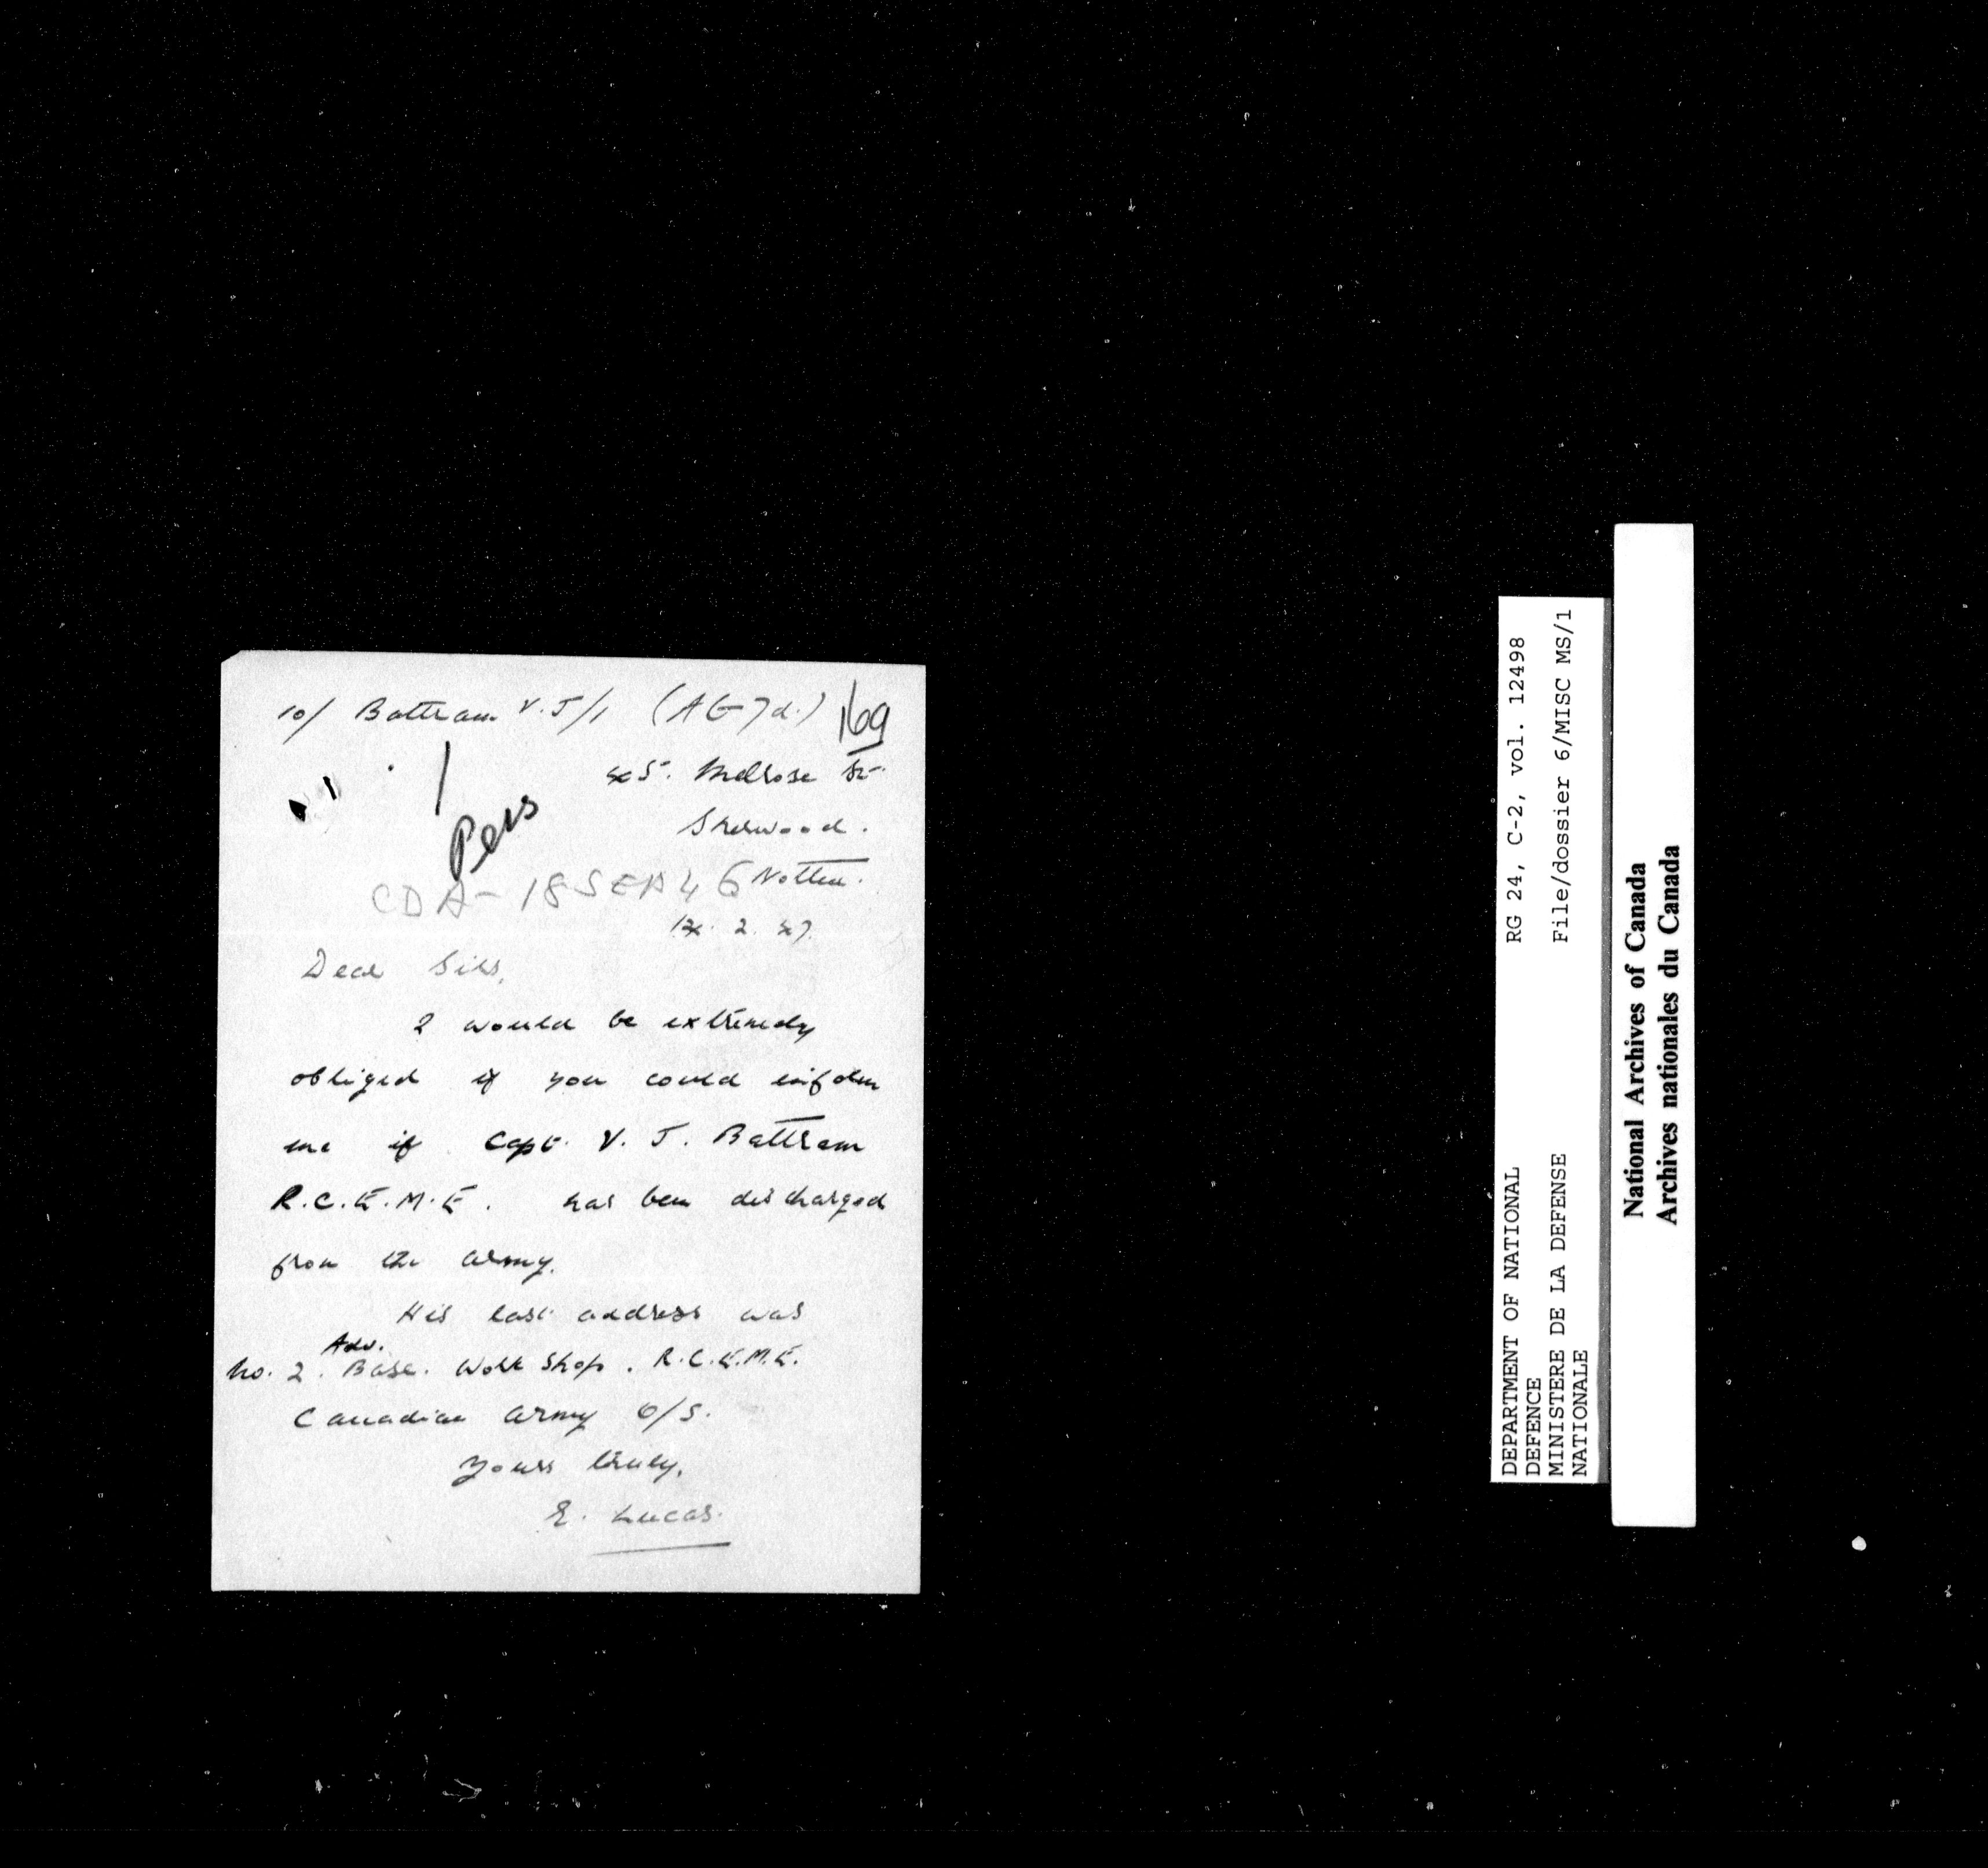 10/ Battram V.J/1 (AG7d.) 169
45. Melrose St.
Pers
Sherwood.
CDA-18SEP46 Nottm.
2. 47.
Dear Sirs,
I would be extremely
obliged if you could inform
me if Capt. V. J. Battram
R.C.E.M.E. has been discharged
from the army.
His last address was
Adv.
No. 2. Base. Work Shop. R.C.E.M.E.
Canadian Army O/S.
Yours truly,
E. Lucas.
DEPARTMENT OF NATIONAL
DEFENCE
MINISTERE DE LA DEFENSE
NATIONALE
RG 24, C-2, vol. 12498
File/dossier 6/MISC MS/1
National Archives of Canada
Archives nationales du Canada